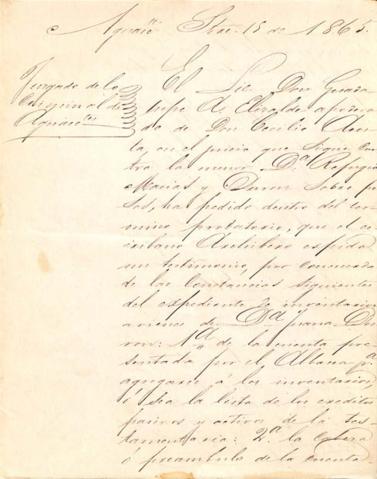 Aguas.tes 15 de 1865.
Juzgado de lo
Criminal de
Aguas.tes
El Lic. Don Guada
lupe
de Don Cecilio
ta, en el juicio que sigue con
tra la menor D.a Refugio
Macias y Duron sobre pe
sos, ha pedido dentro del ter
mino probatorio, que el es
cribano Archivero expida
un testimonio, por concuerda
de las constancias siguientes
del expediente de inventarios
de D.a Juana Du
ron: 1.a de la cuenta pre
sentada por el Albacea p.a
agregarse á los inventarios,
ó sea la lista de los creditos
pasivos y activos de la tes
tamentaria: 2.a la cabeza
ó preambulo de la cuenta